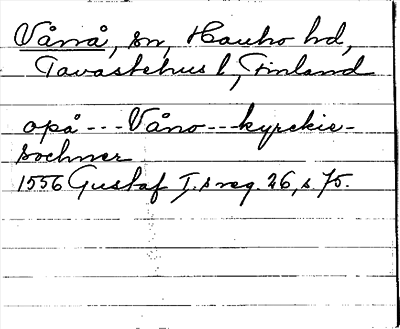 Vånå, sn, Hauho hd,
Tavastehus l, Finland
opå --- Våno --- kyrckie-
sochner
1556 Gustaf I.s reg. 26, s. 75.